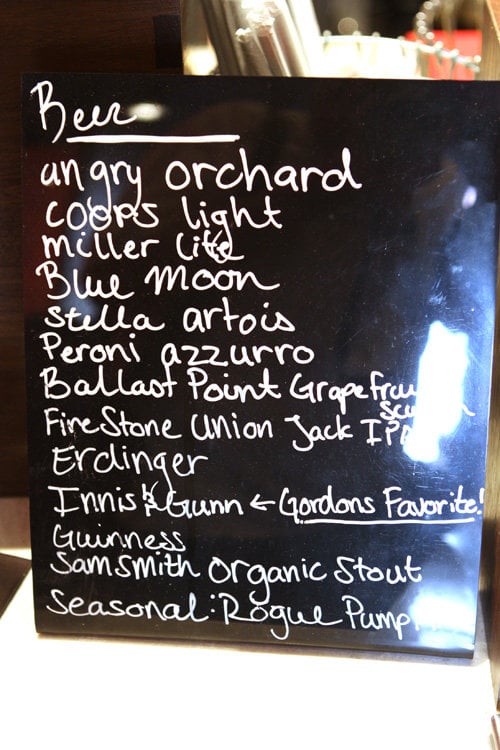 Beer
angry orchard
coors light
miller lite
Blue Moon
stella artois
Peroni azzurro
Ballast Point Grapefruit
sculpin
FireStone Union Jack IPA
Erdinger
Innis & Gunn ← Gordons Favorite!
Guinness
Samsmith organic Stout
Seasonal: Rogue